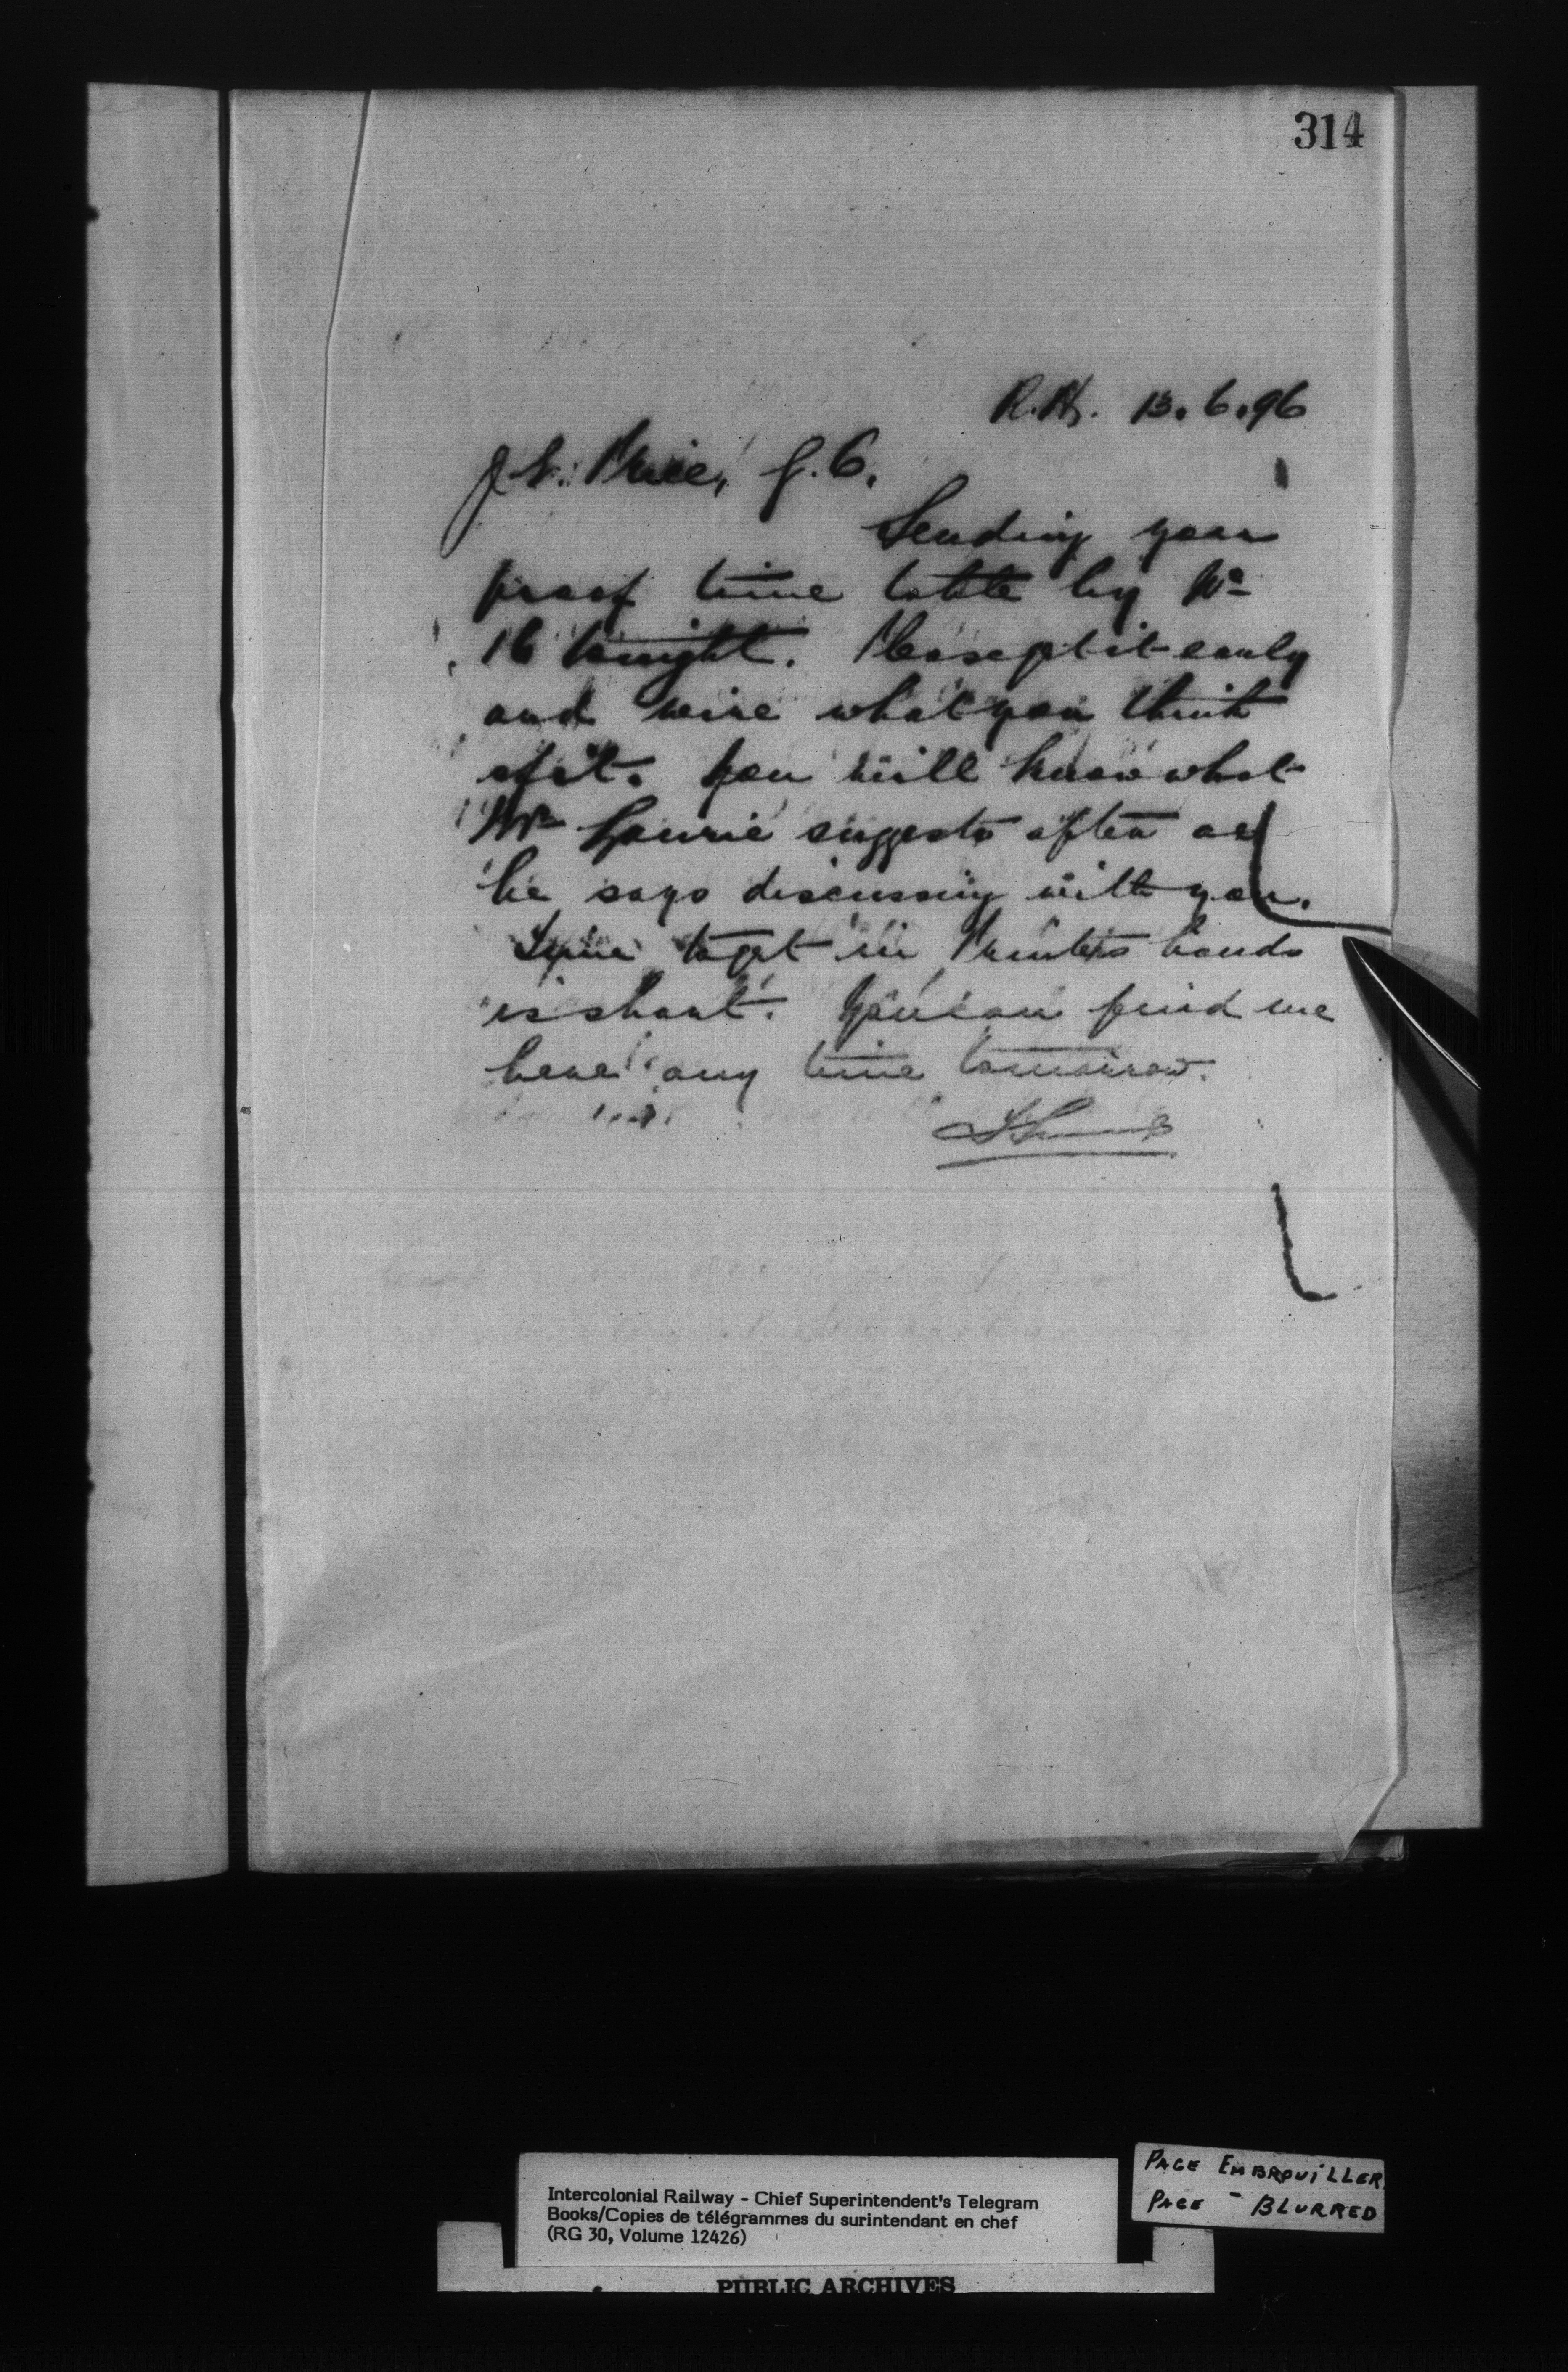 314
R.H. 13.6.96
J. Price, J.C.
Sending you
proof time table by No
16 tonight. Please get it early
and wire what you think
of it. You will know what
Mr Lawrie suggests after as
he says discussing with you.
Time to get in Printers hands
is short. You can find me
here any time tomorrow.
Intercolonial Railway - Chief Superintendent's Telegram
Books/Copies de télégrammes du surintendant en chef
(RG 30, Volume 12426)
PAGE EMBROUILLER
PAGE - BLURRED
PUBLIC ARCHIVES